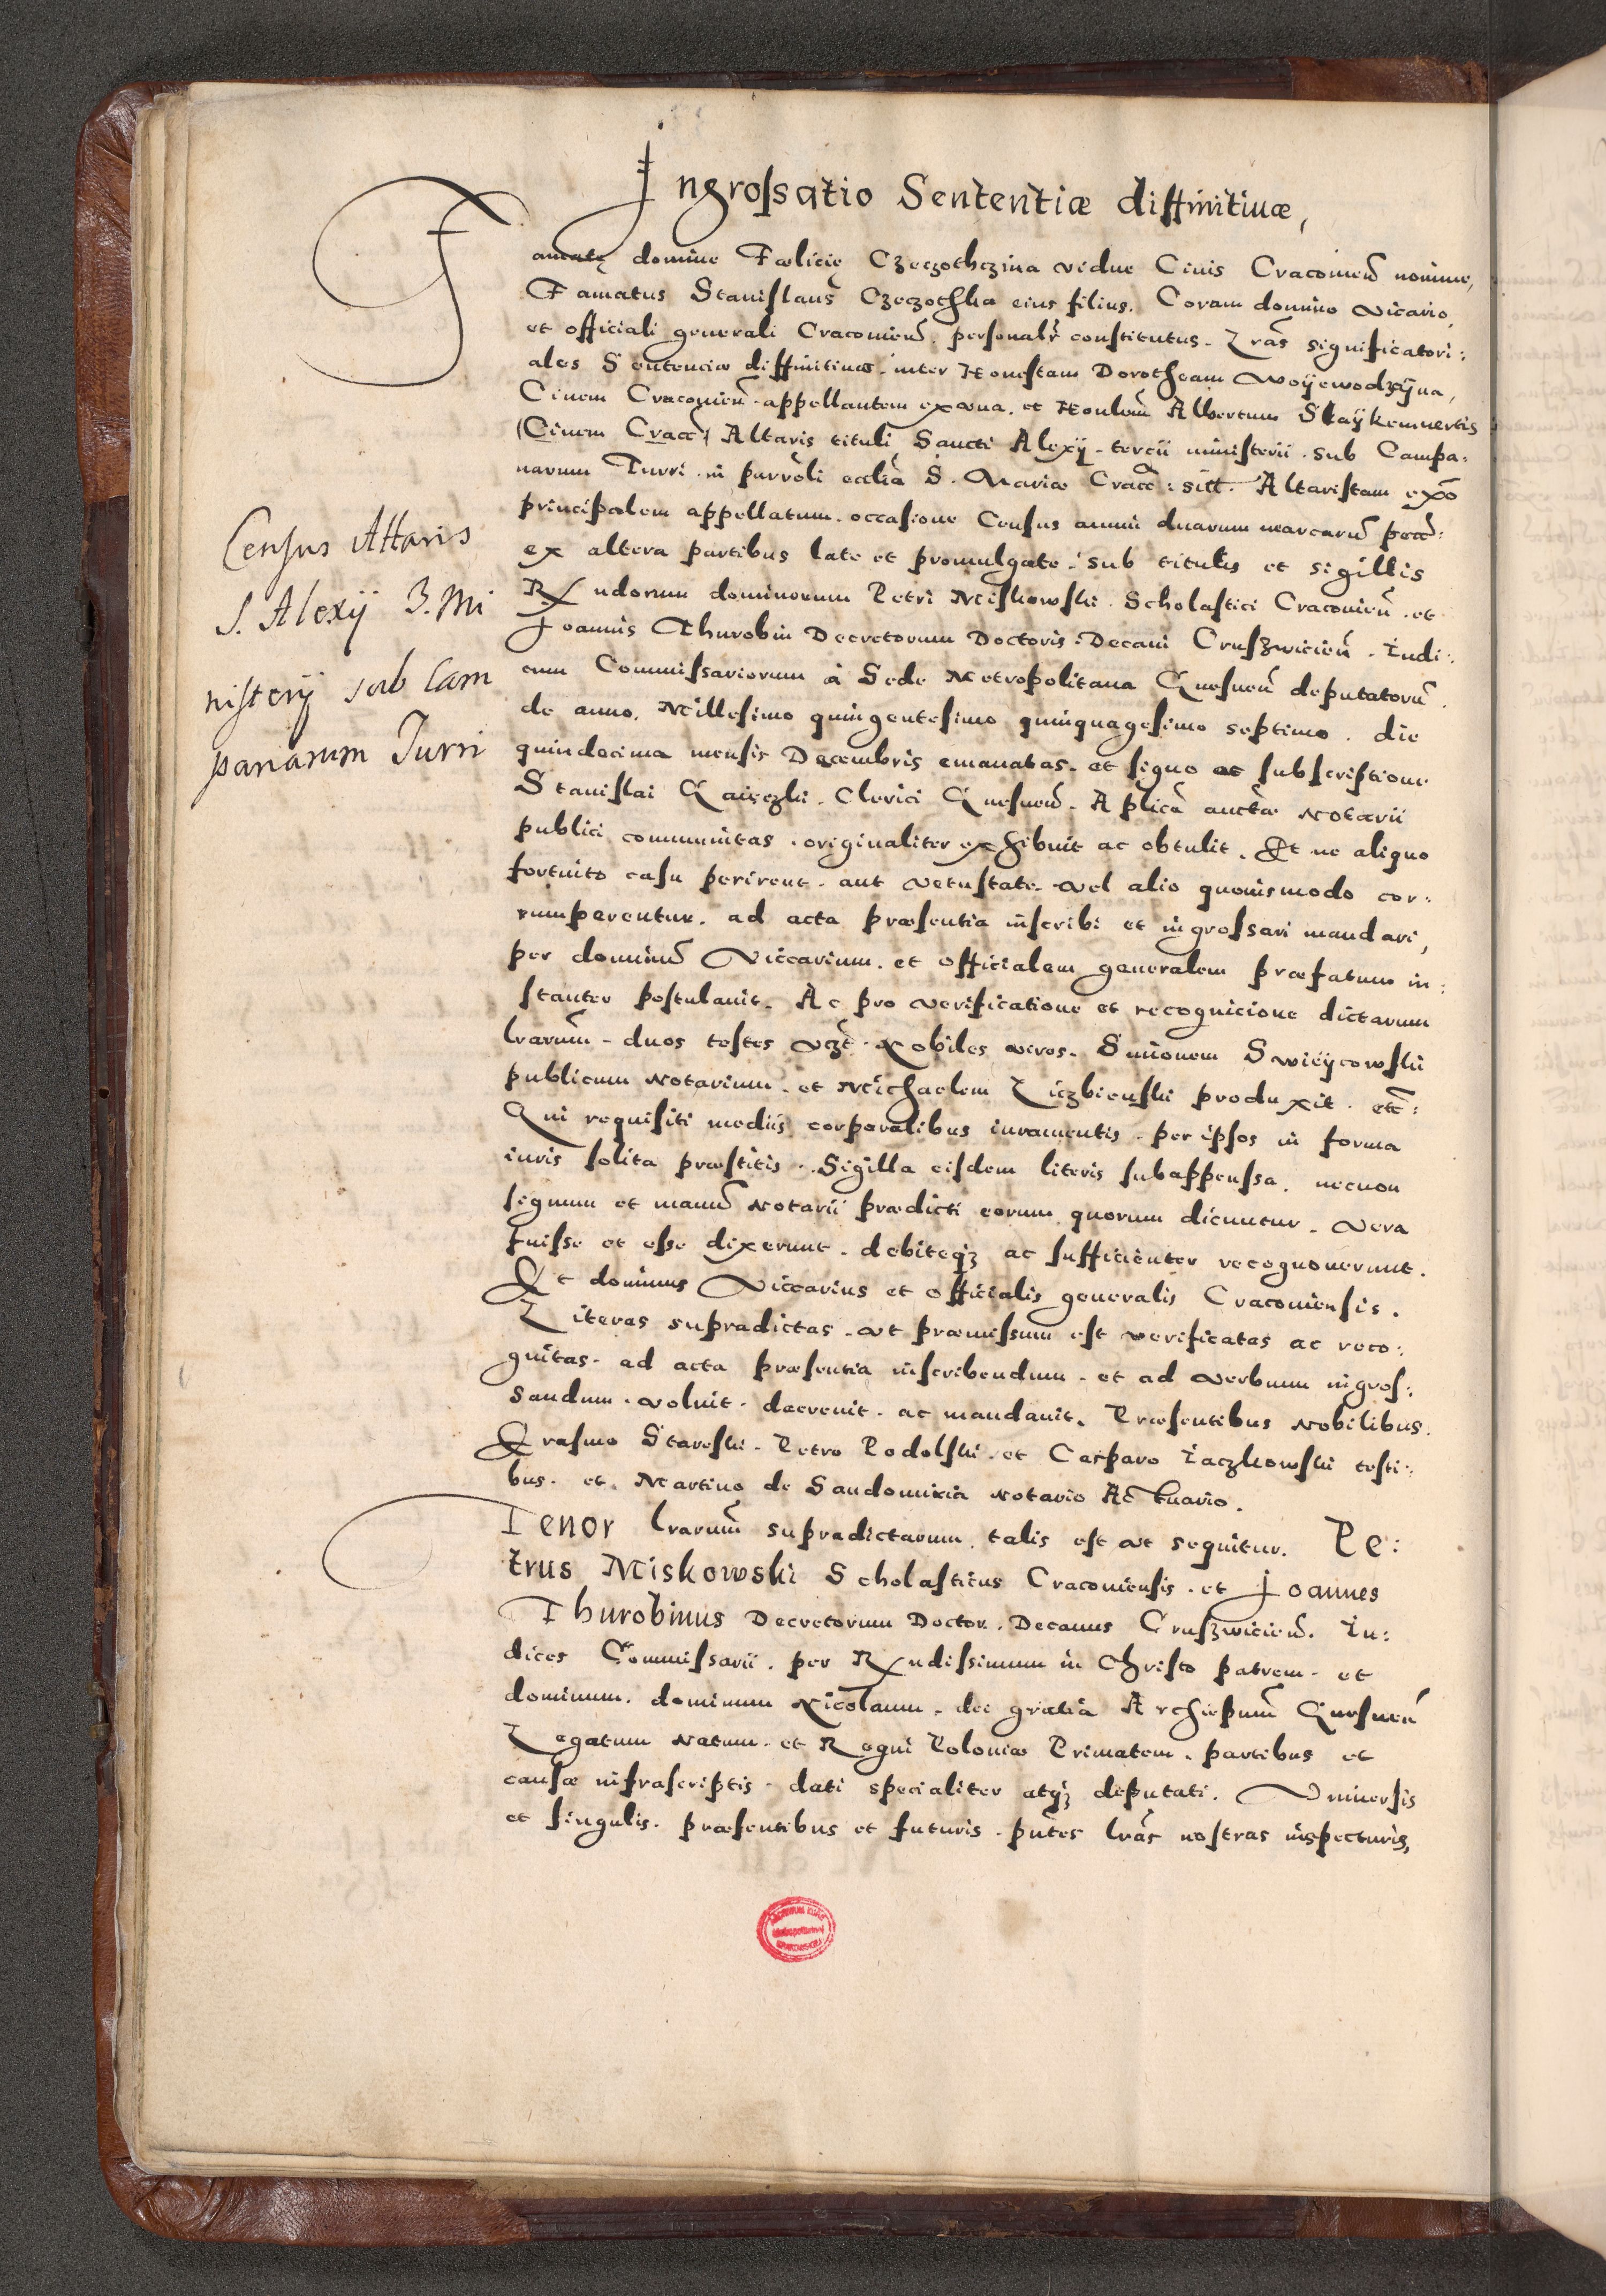 Ingrossatio Sententiæ diffinitiuæ,
Famatę domine Fœlicie Czeczothczina vidue Ciuis Cracouień nomine,
Famatus Stanislaus Czeczothka eius filius. Coram domino Vicario,
et officiali generali Cracouień. personalr̃ constitutus. Lrãs significatori:
ales Sentenciæ diffinitiuæ. inter Honestam Dorotheam Woijewodzÿna,
Ciuem Cracouień. appellantem ex vna. et Honlem̃ Albertum Staÿkemnertis
(Ciuem Craco͂) Altaris tituli Sancti Alexij. tercii ministerii. sub Campa:
narum Turri. in parroli ecclia͂ S. Mariæ Craco͂: sitt. Altaristam ex͂o
principalem appellatum. occasione Census annui duarum marcarũ pecũ:
ex altera partibus late et promulgate. sub titulis et sigillis
Rndorum dominorum Petri Miskowski. Scholastici Cracouień. et
Joannis Thurobin Decretorum Doctoris. Decani Cruszwicień. Iudi:
cum Commissariorum à Sede Metropolitana Gnesneń deputatorũ.
de anno. Millesimo quingentesimo quinquagesimo septimo. die
quindecima mensis Decembris emanatas. et signo et subscriptione
Stanislai Gaięczki. Clerici Gnesneń. Aplica͂ auctãe Notarii
publici communitas. originaliter exhibuit ac obtulit. Et ne aliquo
fortuito casu perirent. aut vetustate. vel alio quouismodo cor:
rumperentur. ad acta præsentia inscribi et ingrossari mandari,
per dominũ Viccarium. et officialem generalem præfatum in:
stanter postulauit. Ac pro verificatione et recognicione dictarum
lrarum̃. duos testes vczt. Nobiles viros. Simonem Swiÿcowski
publicum Notarium. et Michaelem Liczbienski produxit. etc̃:
Qui requisiti mediis corporalibus iuramentis. per ipsos in forma
iuris solita præstitis. Sigilla eisdem literis subappenssa. necnon
signum et manũ Notarii prædicti eorum quorum dicuntur. vera
fuisse et esse dixerunt. debiteqȝ ac sufficienter recognouerunt.
Et dominus Viccarius et officialis generalis Cracouiensis.
Literas supradictas. vt præmissum est verificatas ac reco:
gnitas. ad acta præsentia inscribendum. et ad verbum ingros:
sandum. voluit. decreuit. ac mandauit. Præsentibus Nobilibus.
Erasmo Stareski. Petro Podolski. et Casparo Iaczkowski testi:
bus. et. Martino de Sandomiria Notario Actuario.
Tenor lrarum̃ supradictarum. talis est vt sequitur. Pe:
trus Miskowski Scholasticus Cracouiensis. et Joannes
Thurobinus Decretorum Doctor. Decanus Cruszwicień. Iu:
dices Commissarii. per Rndissimum in Christo patrem. et
dominum. dominum Nicolaum. dei gratia Archiepum̃ Gnesneń
Legatum Natum. et Regni Poloniæ Primatem. partibus et
causæ infrascriptis. dati specialiter atqȝ deputati. Vniuersis
et singulis. præsentibus et futuris. pñtes lrãs nostras inspecturis,
Census Altaris
S. Alexij 3. Mi
nisterij sub Cam
panarum Turri